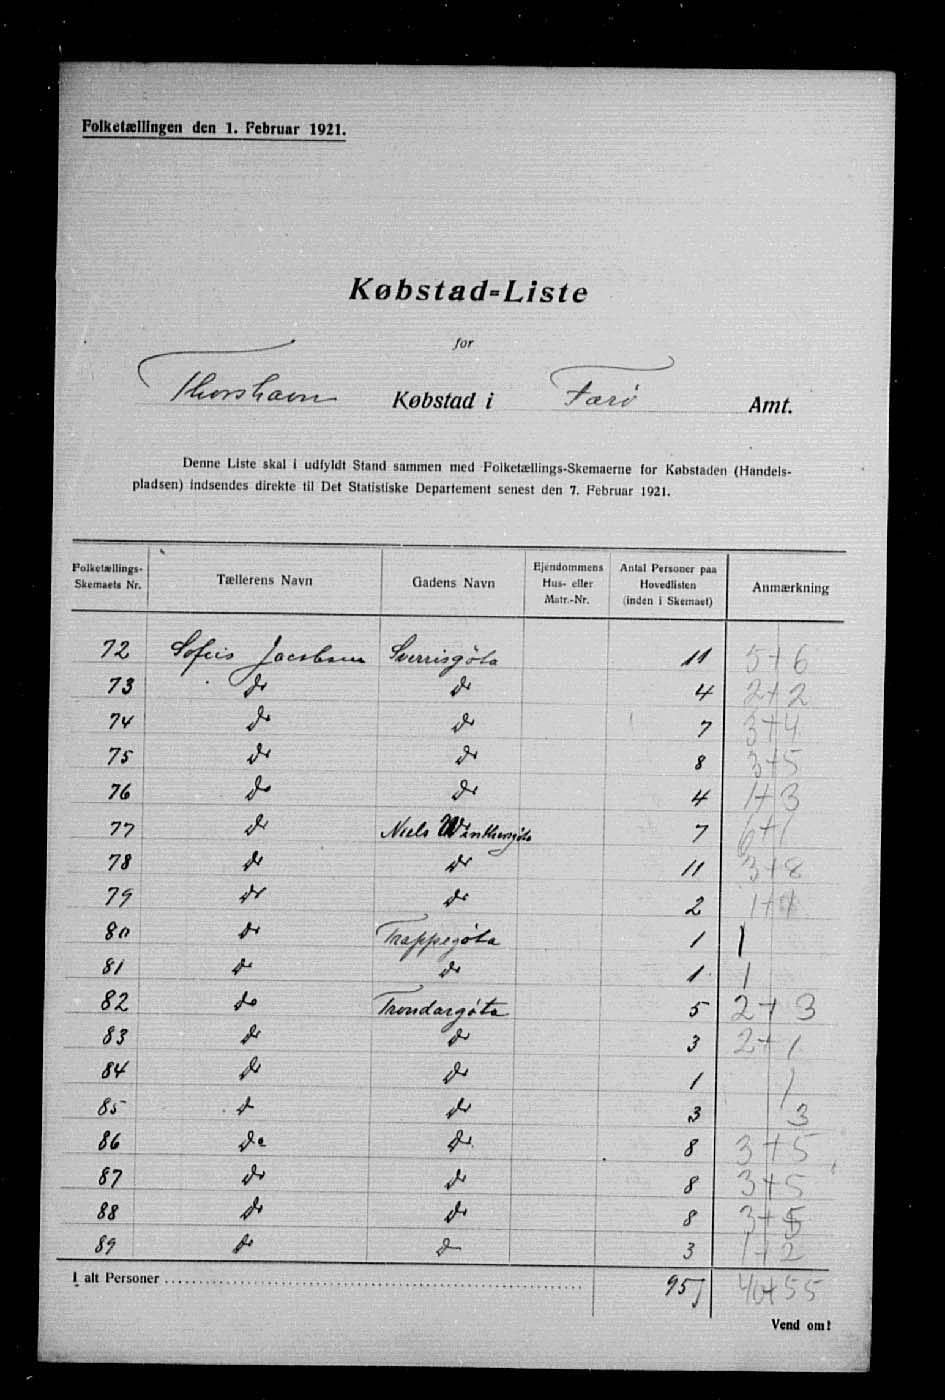 Folketællingen den 1. Februar 1921.
Købstad-Liste
for
Thorshavn Købstad i Færø Amt.
Denne Liste skal i udfyldt Stand sammen med Folketællings-Skemaerne for Købstaden (Handels-
pladsen) indsendes direkte til Det Statistiske Departement senest den 7. Februar 1921.
Folketællings-Skemaets Nr. Tællerens Navn Gadens Navn Ejendommens Hus- eller Matr.-Nr. Antal Personer paa Hovedlisten (inden i Skemaet) Anmærkning
72 Sofus Jacobsen Sverrisgöta 11 5+6
73 do do 4 2+2
74 do do 7 3+4
75 do do 8 3+5
76 do do 4 1+3
77 do Niels Winthersgöta 7 6+1
78 do do 11 3+8
79 do do 2 1+1
80 do Trappegöta 1 1
81 do do 1 1
82 do Trondargöta 5 2+3
83 do do 3 2+1
84 do do 1 1
85 do do 3 3
86 do do 8 3+5
87 do do 8 3+5
88 do do 8 3+5
89 do do 3 1+2
I alt Personer 95 40+55
Vend om!